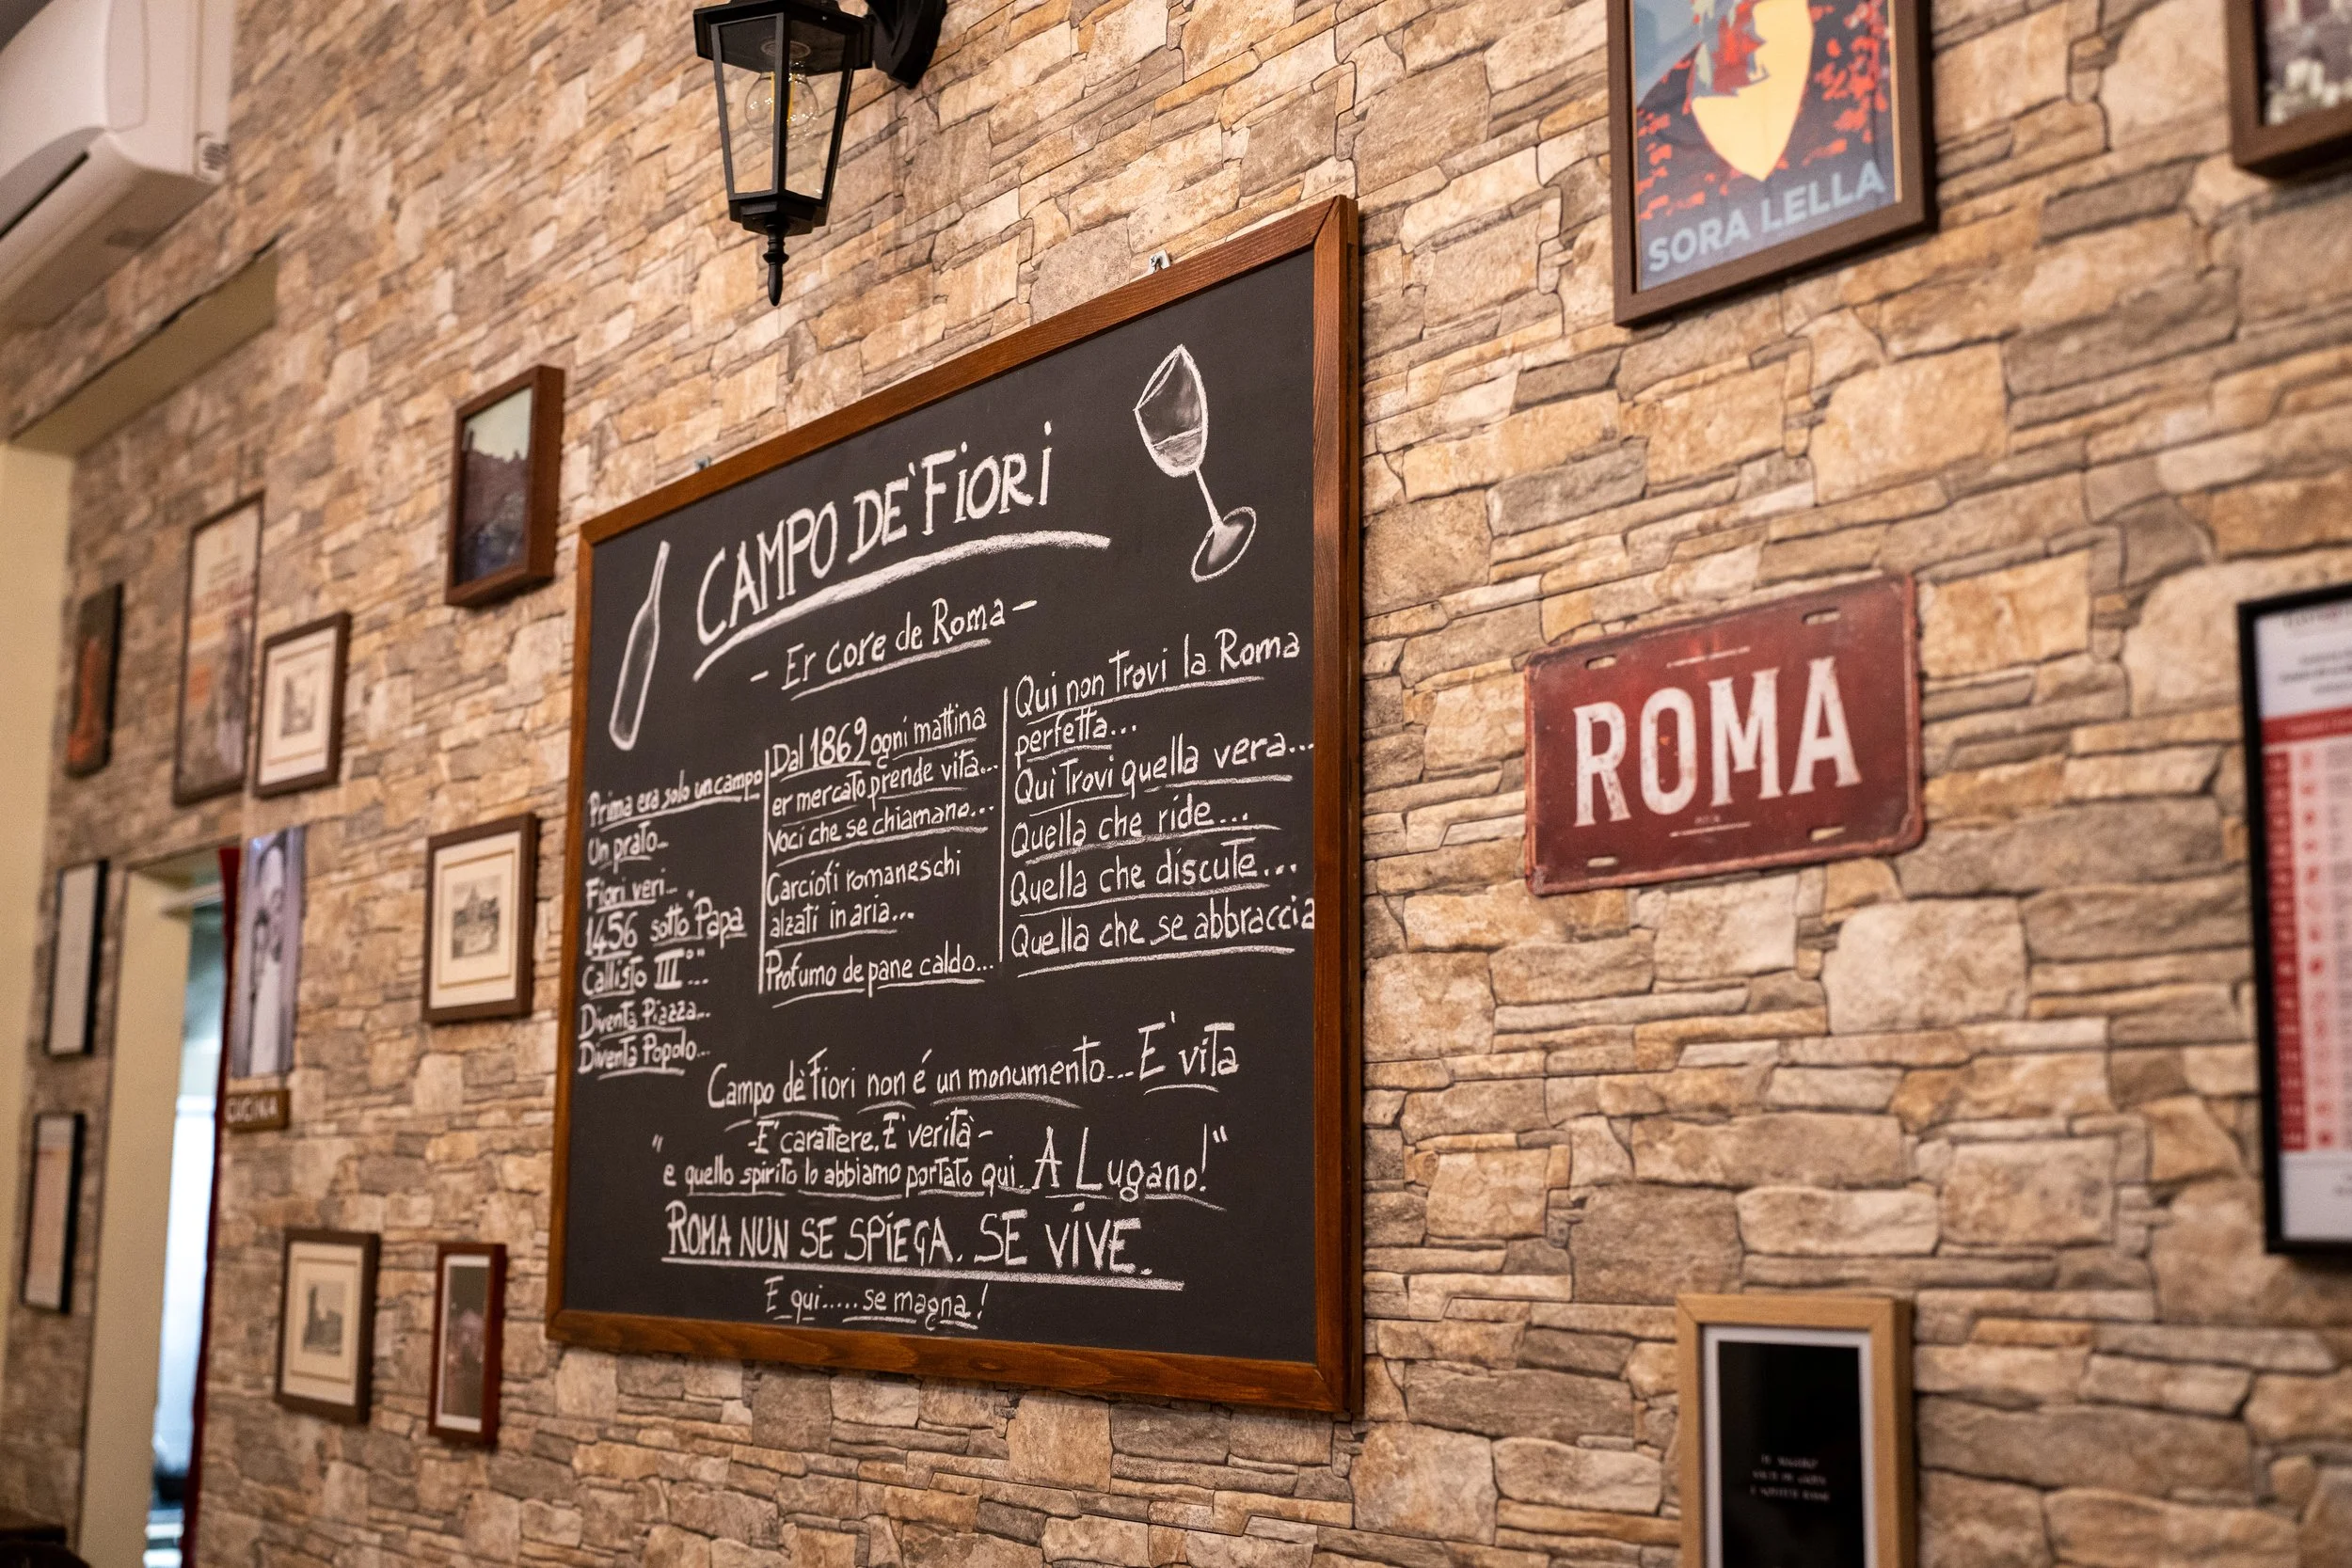 SORA LELLA
CAMPO DE' FIORI
- Er core de Roma -
Prima era solo un campo
Un prato...
Fiori veri...
1456 sotto "Papa
Callisto III°"...
Diventa Piazza...
Diventa Popolo...
Dal 1869 ogni mattina
er mercato prende vita...
Voci che se chiamano...
Carciofi romaneschi
alzati in aria...
Profumo de pane caldo...
Qui non Trovi la Roma
perfetta...
Qui Trovi quella vera...
Quella che ride...
Quella che discute...
Quella che se abbraccia
Campo dè Fiori non é un monumento... E' vita
- E' carattere. E' verità -
"e quello spirito lo abbiamo portato qui. A Lugano!"
ROMA NUN SE SPIEGA. SE VIVE.
E qui..... se magna!
ROMA
CUCINA